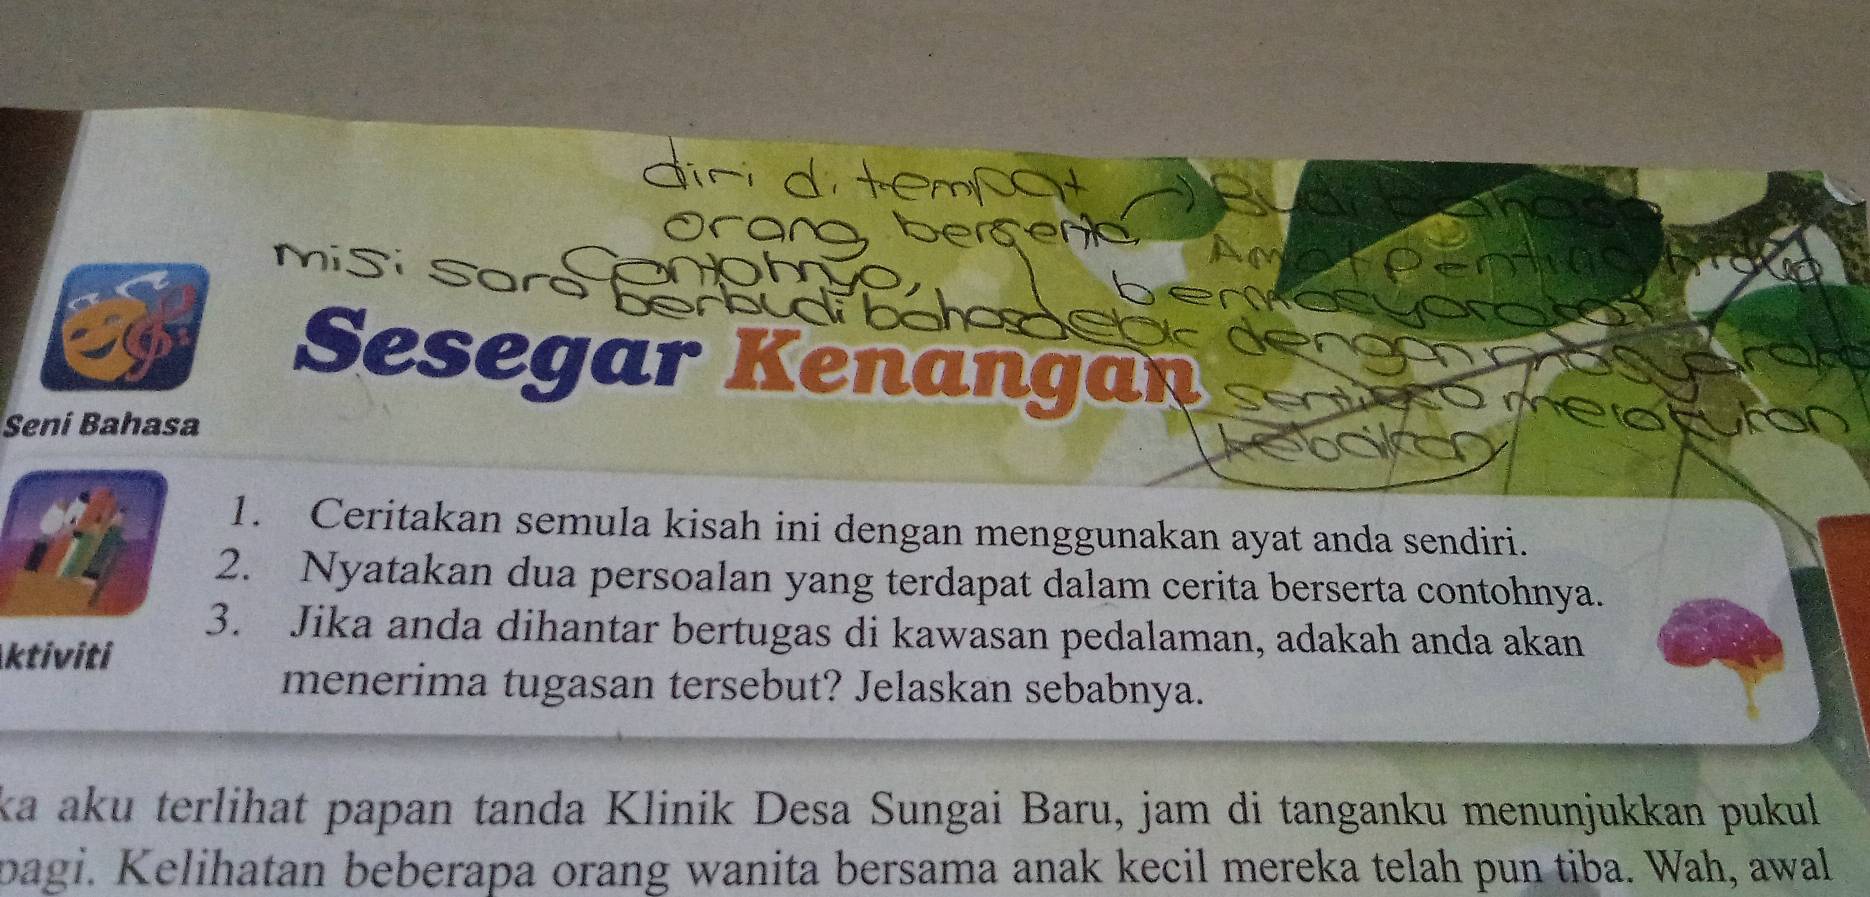 diri di tempat
orang
misi
Contohnya,
berbudi bahasa
dengan
kebaikan
Sesegar Kenangan
Seni Bahasa
1. Ceritakan semula kisah ini dengan menggunakan ayat anda sendiri.
2. Nyatakan dua persoalan yang terdapat dalam cerita berserta contohnya.
3. Jika anda dihantar bertugas di kawasan pedalaman, adakah anda akan
menerima tugasan tersebut? Jelaskan sebabnya.
ktiviti
ka aku terlihat papan tanda Klinik Desa Sungai Baru, jam di tanganku menunjukkan pukul
pagi. Kelihatan beberapa orang wanita bersama anak kecil mereka telah pun tiba. Wah, awal